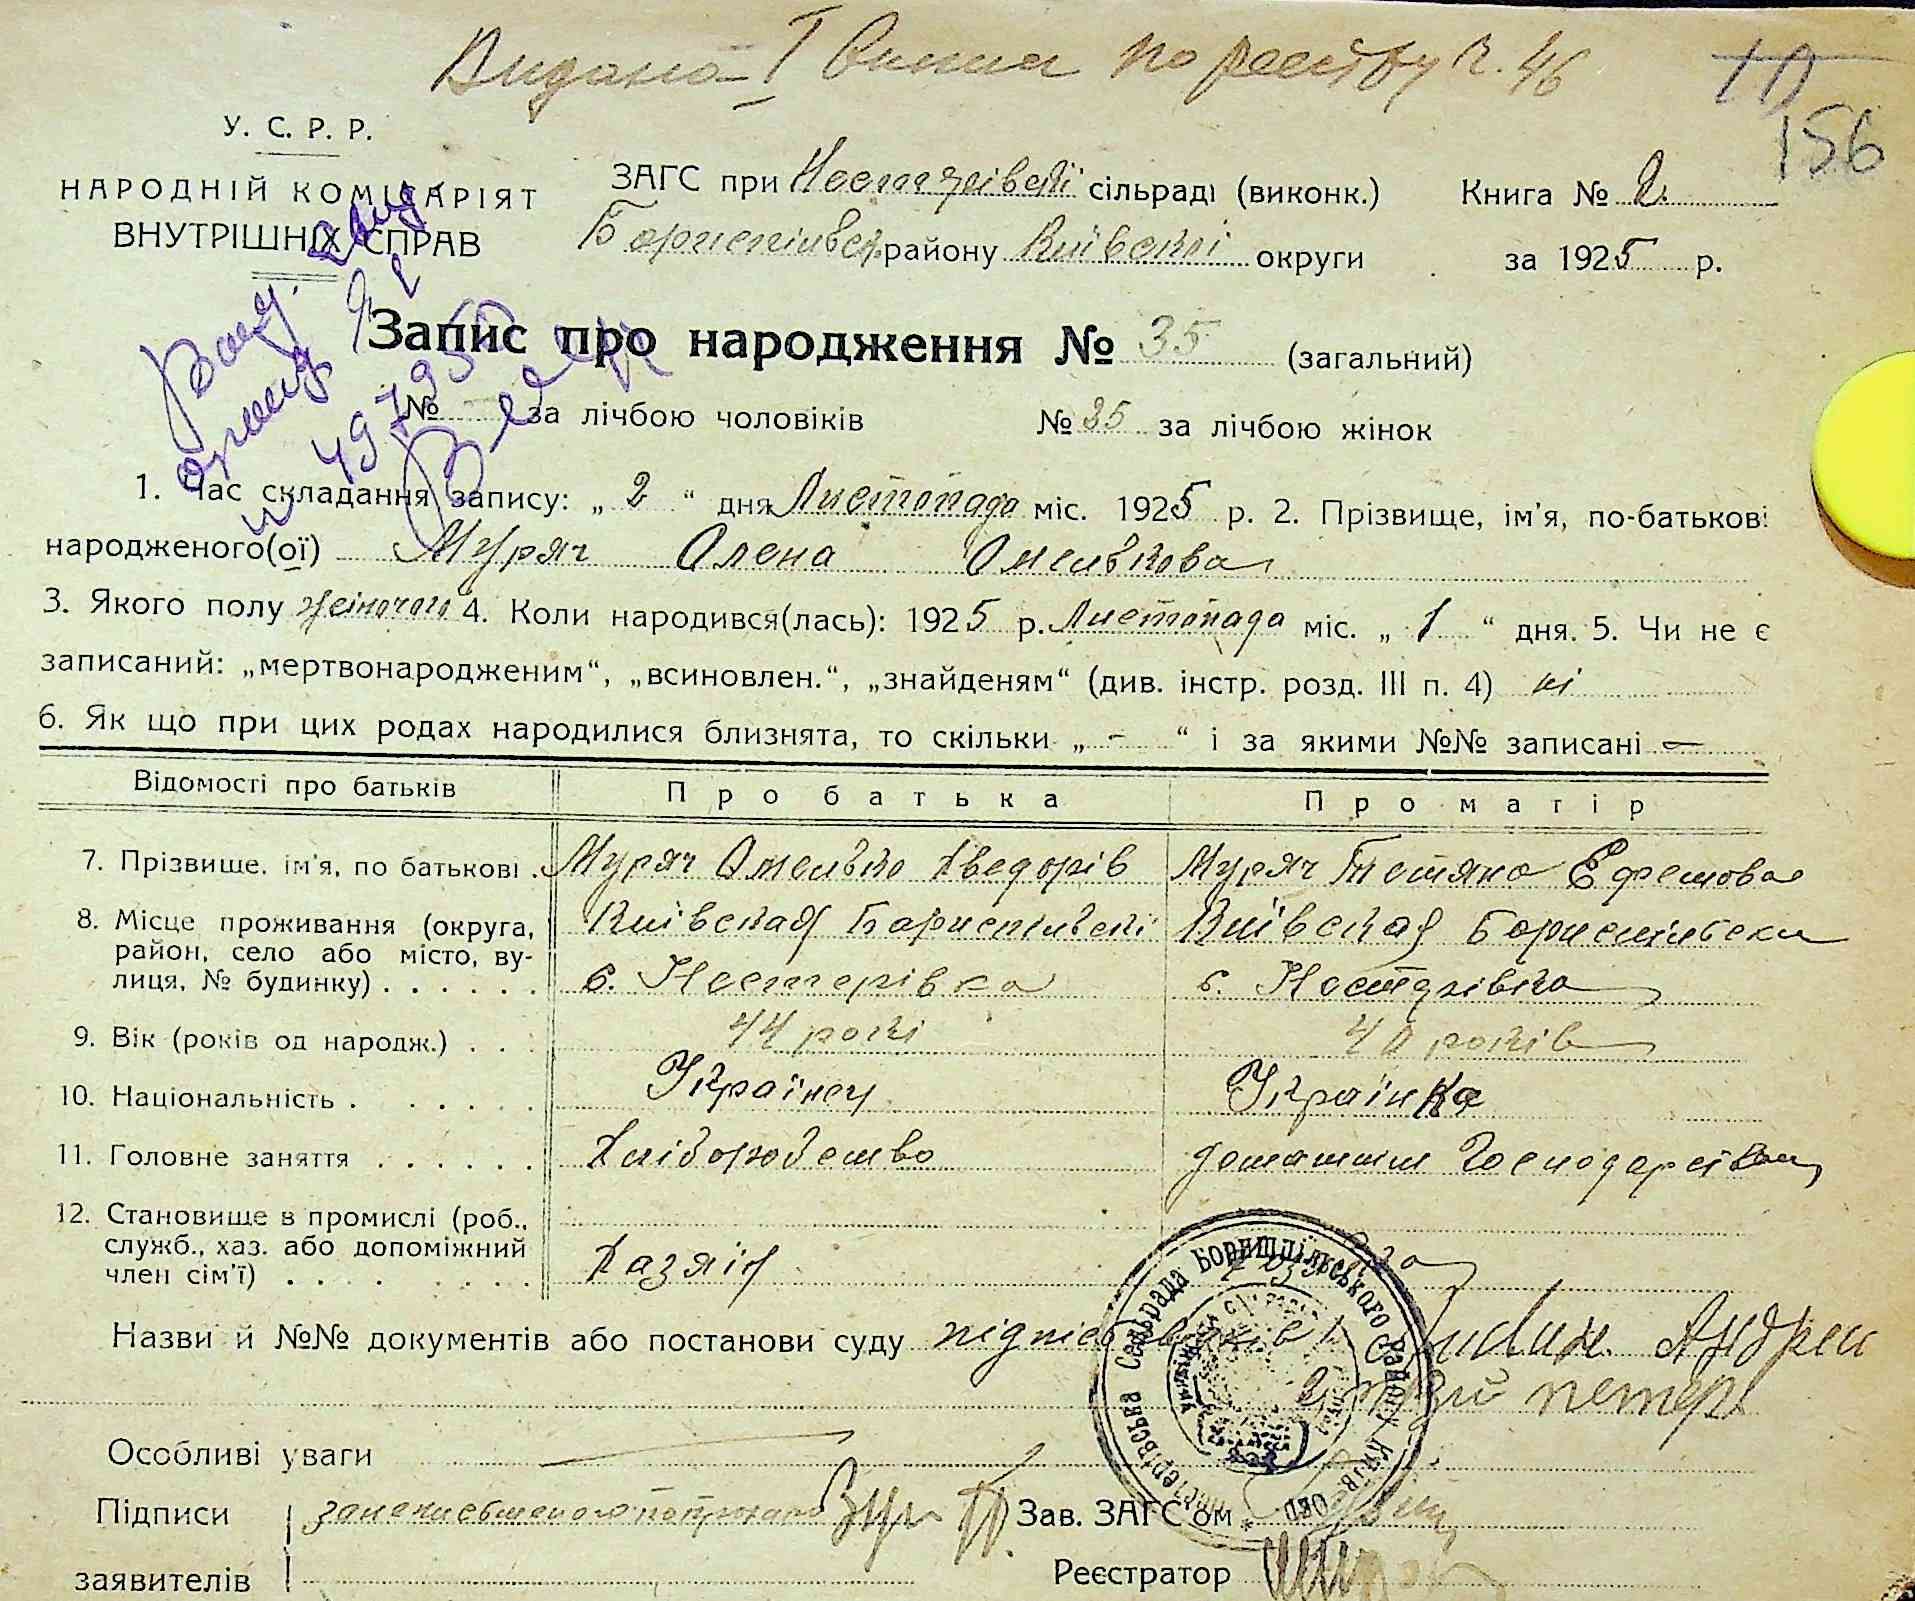 Видана І виписи по реєстру ч. 46
10
156
У. С. Р. Р.
НАРОДНІЙ КОМІСАРІЯТ
ВНУТРІШНІХ СПРАВ
ЗАГС при Нестерівскі сільраді (виконк.) Книга № 2
Бориспілвск. району Київскої округи за 1925 р.
Запис про народження № 35 (загальний)
№ - за лічбою чоловіків № 35 за лічбою жінок
1. Час складання запису: „ 2 “ дня Листопада міс. 1925 р. 2. Прізвище, ім'я, по-батькові
народженого(ої) Муряч Олена Омелькова
3. Якого полу жіночого 4. Коли народився(лась): 1925 р. Листопада міс. „ 1 “ дня. 5. Чи не є
записаний: „мертвонародженим“, „всиновлен.“, „знайденям“ (див. інстр. розд. III п. 4) ні
6. Як що при цих родах народилися близнята, то скільки „ - “ і за якими №№ записані —
Відомості про батьків Про батька Про матір
7. Прізвище, ім'я, по батькові . Муряч Омелько Хведорів Муряч Тетяна Ефемова
8. Місце проживання (округа, район, село або місто, вулиця, № будинку) . . . . . . Київская Бориспілвскі Київская Бориспілвски
с. Нестерівка с. Нестерівка
9. Вік (років од народж.) . . . 44 рокі 40 років
10. Національність . . . . . . Українец Українка
11. Головне заняття . . . . . . Хліборобство домашним Господарством
12. Становище в промислі (роб., служб., хаз. або допоміжний член сім'ї) . . . . . . . Хазяін
Назви й №№ документів або постанови суду підпіс Андрей
Нестерівська Сельрада Бориспільського Району Київ. Окр.
Особливі уваги
Підписи
Зав. ЗАГС'ом
заявителів
Реєстратор